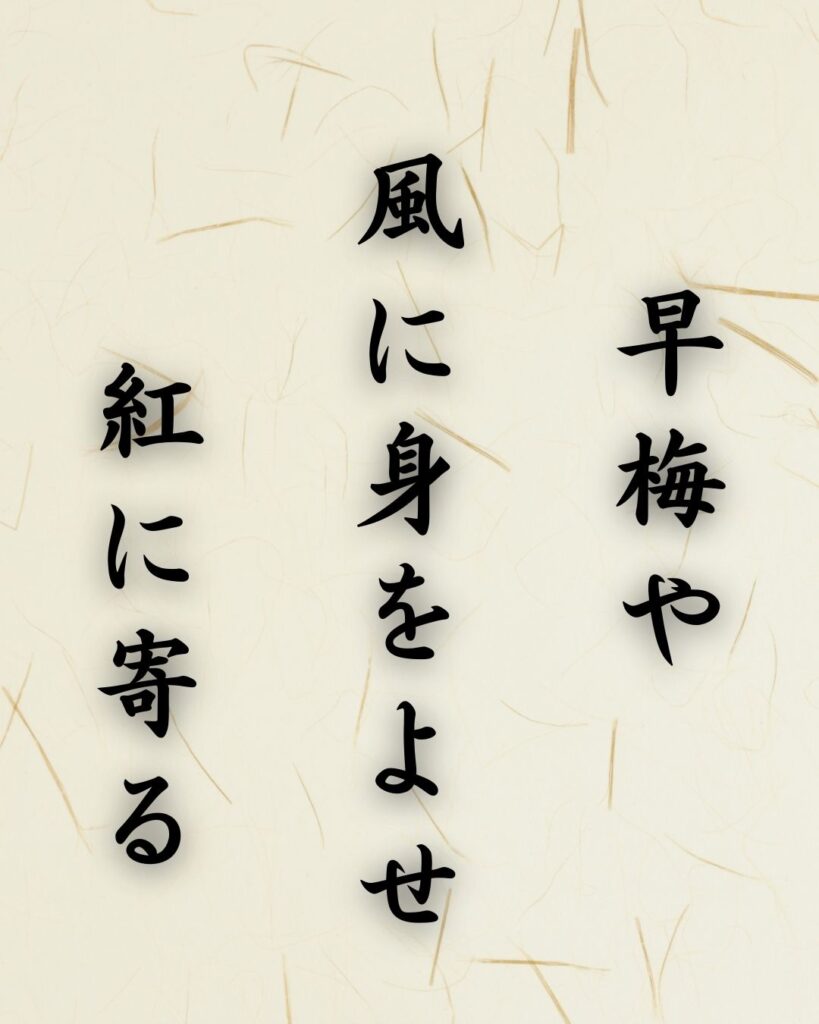 早梅や
風に身をよせ
紅に寄る